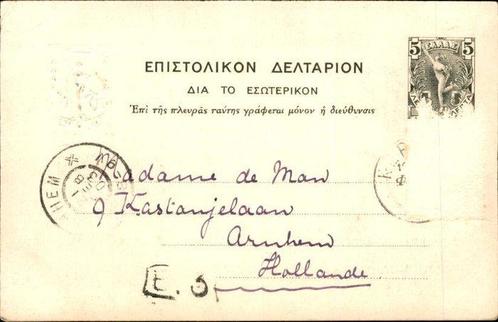 ΕΠΙΣΤΟΛΙΚΟΝ ΔΕΛΤΑΡΙΟΝ
ΔΙΑ ΤΟ ΕΣΩΤΕΡΙΚΟΝ
Ἐπὶ τῆς πλευρᾶς ταύτης γράφεται μόνον ἡ διεύθυνσις
5 ΕΛΛΑΣ 5
Madame de Man
9 Kastanjelaan
Arnhem
Hollande